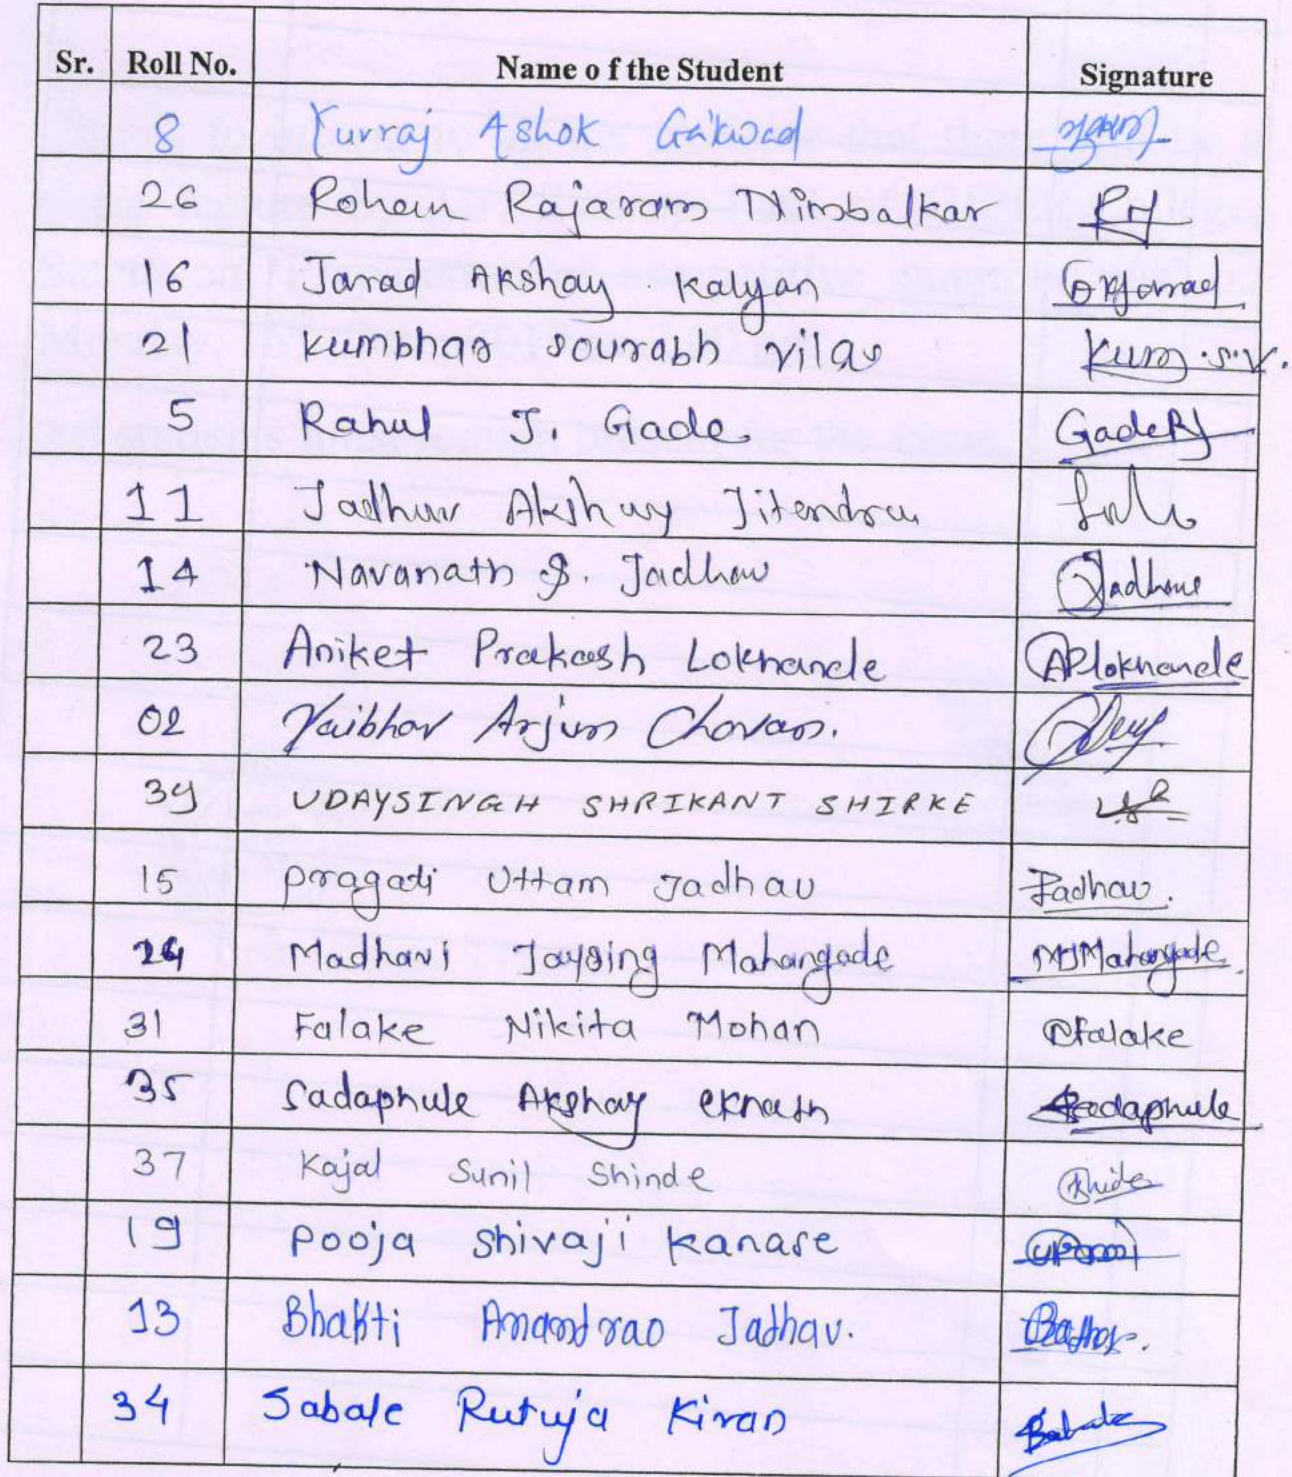 Sr. Roll No. Name o f the Student Signature
8 Yuvraj Ashok Gaikwad
26 Rohan Rajaram Nimbalkar
16 Jarad Akshay Kalyan
21 Kumbhar Sourabh Vilas Kum S.V.
5 Rahul J. Gade. GadeRJ
11 Jadhav Akshay Jitendra
14 Navanath S. Jadhav Jadhav
23 Aniket Prakash Lokhande APLokhande
02 Vaibhav Arjun Chavan.
39 UDAYSINGH SHRIKANT SHIRKE
15 Pragati Uttam Jadhav Jadhav.
24 Madhavi Jaysing Mahangade MJMahangade
31 Falake Nikita Mohan Nfalake
35 Sadaphule Akshay Eknath Sadaphule
37 Kajal Sunil Shinde
19 Pooja Shivaji Kanase
13 Bhakti Anandrao Jadhav.
34 Sabale Rutuja Kiran